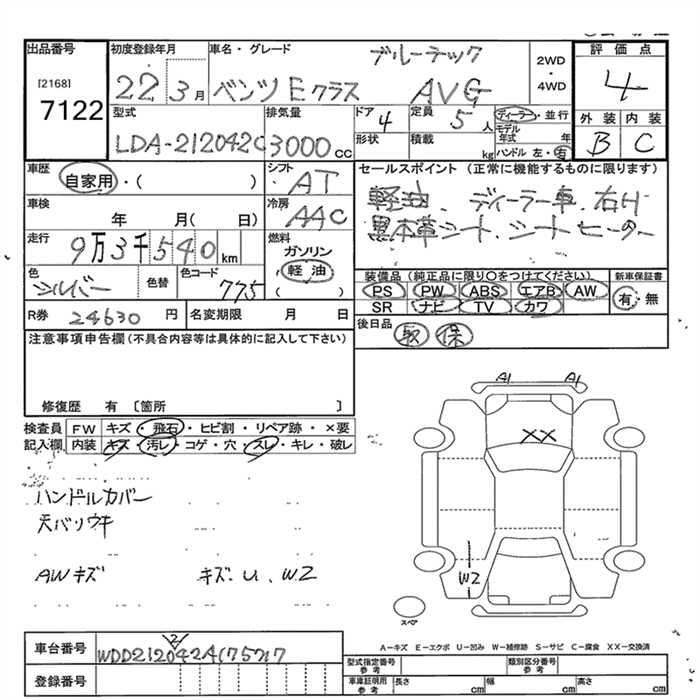 出品番号
[2168]
7122
初度登録年月
22 3月
車名・グレード
ブルーテック
ベンツEクラス AVG
2WD
・
4WD
評価点
4
外装 内装
B C
型式
LDA-212042C
排気量
3000cc
ドア
4
定員
5人
ディーラー・並行
モデル年式 年
形状
積載 kg
ハンドル 左・右
車歴
自家用・( )
シフト
AT
セールスポイント (正常に機能するものに限ります)
軽油. ディーラー車. 右H
黒本革シート. シートヒーター
車検
年 月( 日)
冷房
AAC
走行
9万3千540km
燃料
ガソリン
軽油
( )
色
シルバー
色替
色コード
775
装備品 (純正品に限り○をつけてください)
PS PW ABS エアB AW
SR ナビ TV カワ
新車保証書
有・無
R券 24630 円
名変期限 月 日
後日品
取 保
注意事項申告欄(不具合内容等は具体的に記入して下さい)
修復歴 有 〔箇所 〕
検査員記入欄
FW キズ・飛石・ヒビ割・リペア跡・×要
内装 キズ・汚レ・コゲ・穴・スレ・キレ・破レ
ハンドルカバー
天バリウキ
AWキズ キズ.U.W2
A1 A1
XX
W2
スペア
A－キズ E－エクボ U－凹み W－補修跡 S－サビ C－腐食 XX－交換済
車台番号
2
WDD212042A175217
登録番号
型式指定番号
参考
類別区分番号
参考
車庫証明用
参考
長さ cm 幅 cm 高さ cm